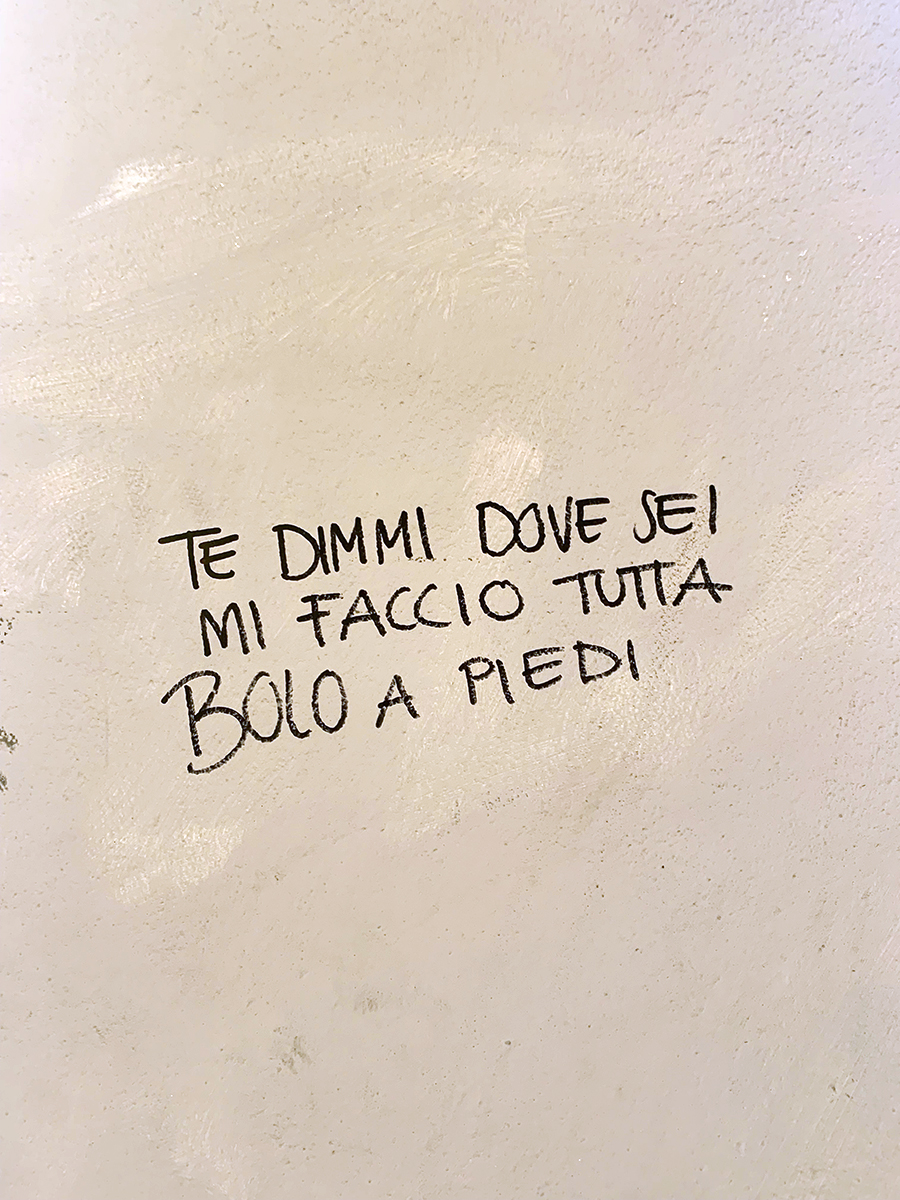 TE DIMMI DOVE SEI
MI FACCIO TUTTA
BOLO A PIEDI